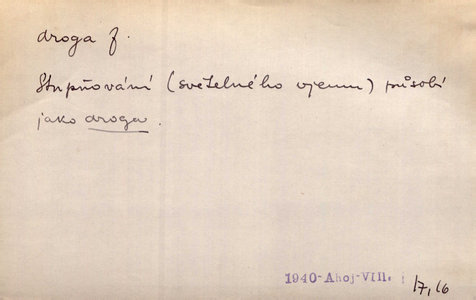 droga f.
Stupňování (světelného vjemu) působí
jako droga.
1940-Ahoj-VIII. 17,16